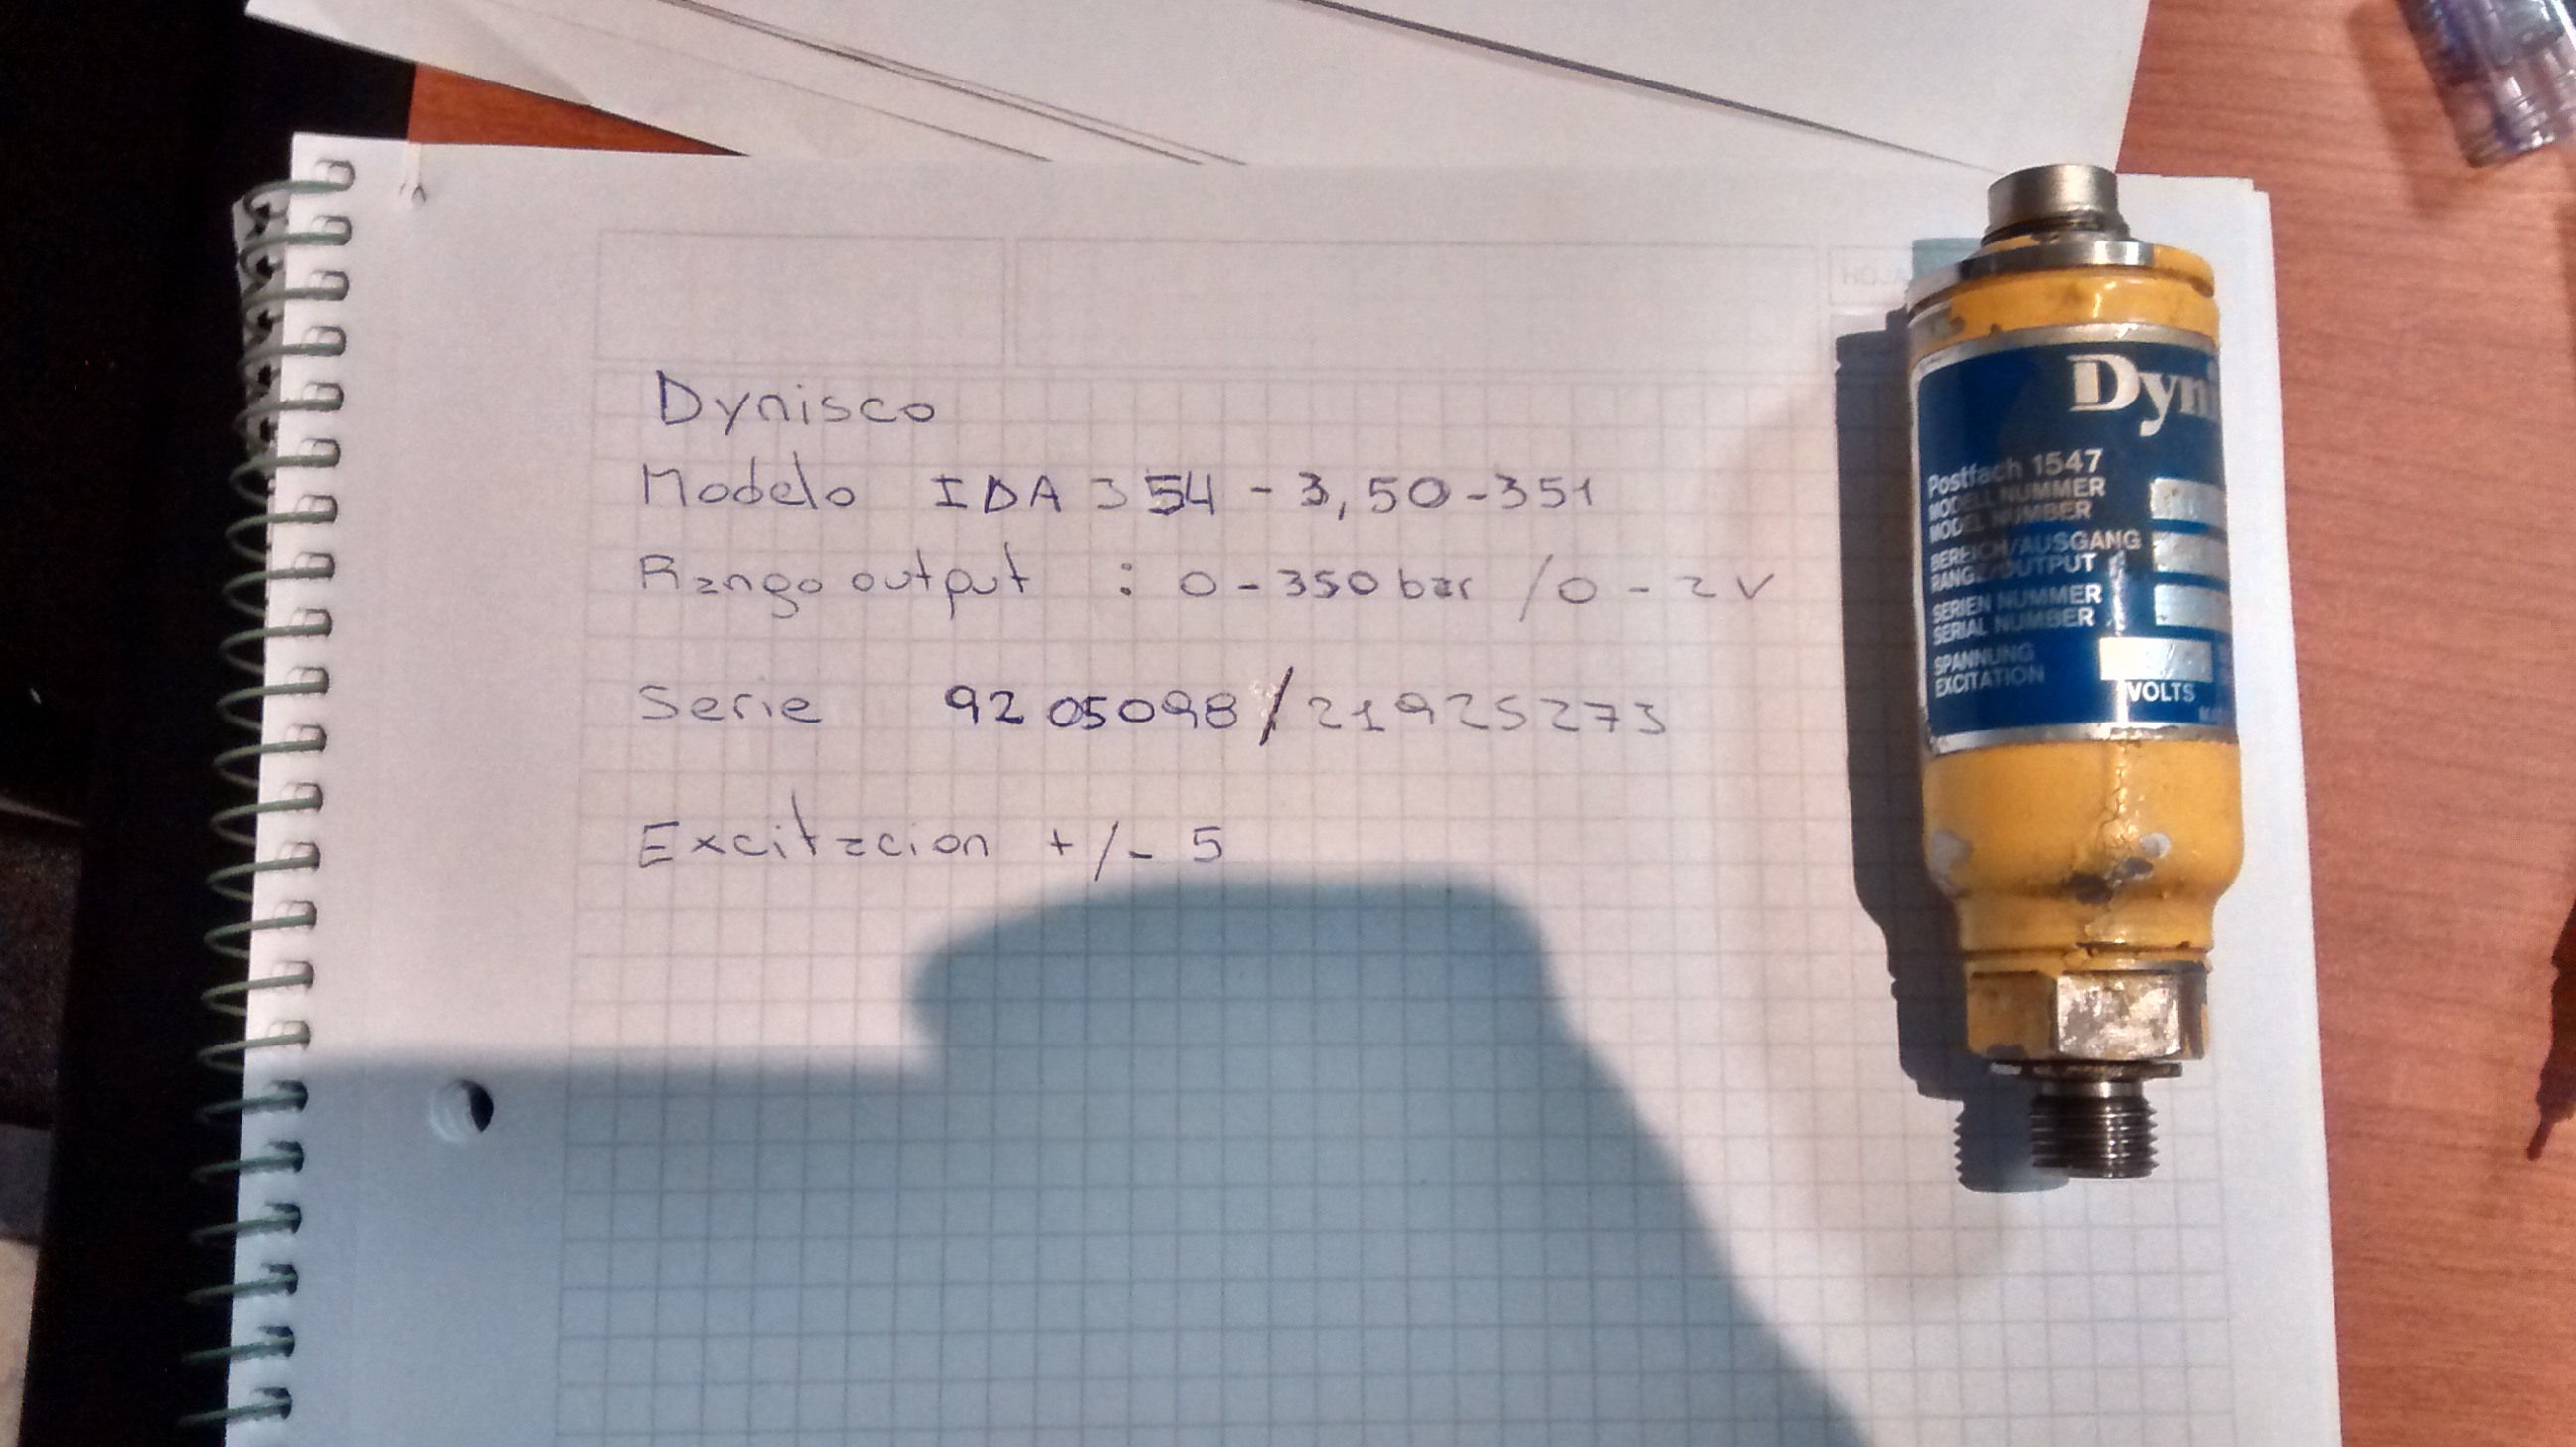 Dynisco
Modelo IDA 354-3,50-351
Rango output : 0-350 bar / 0 - 2 V
Serie 9205098/21925273
Excitacion +/- 5
Dyni
Postfach 1547
MODELL NUMMER
MODEL NUMBER
BEREICH/AUSGANG
RANGE/OUTPUT
SERIEN NUMMER
SERIAL NUMBER
SPANNUNG
EXCITATION
VOLTS